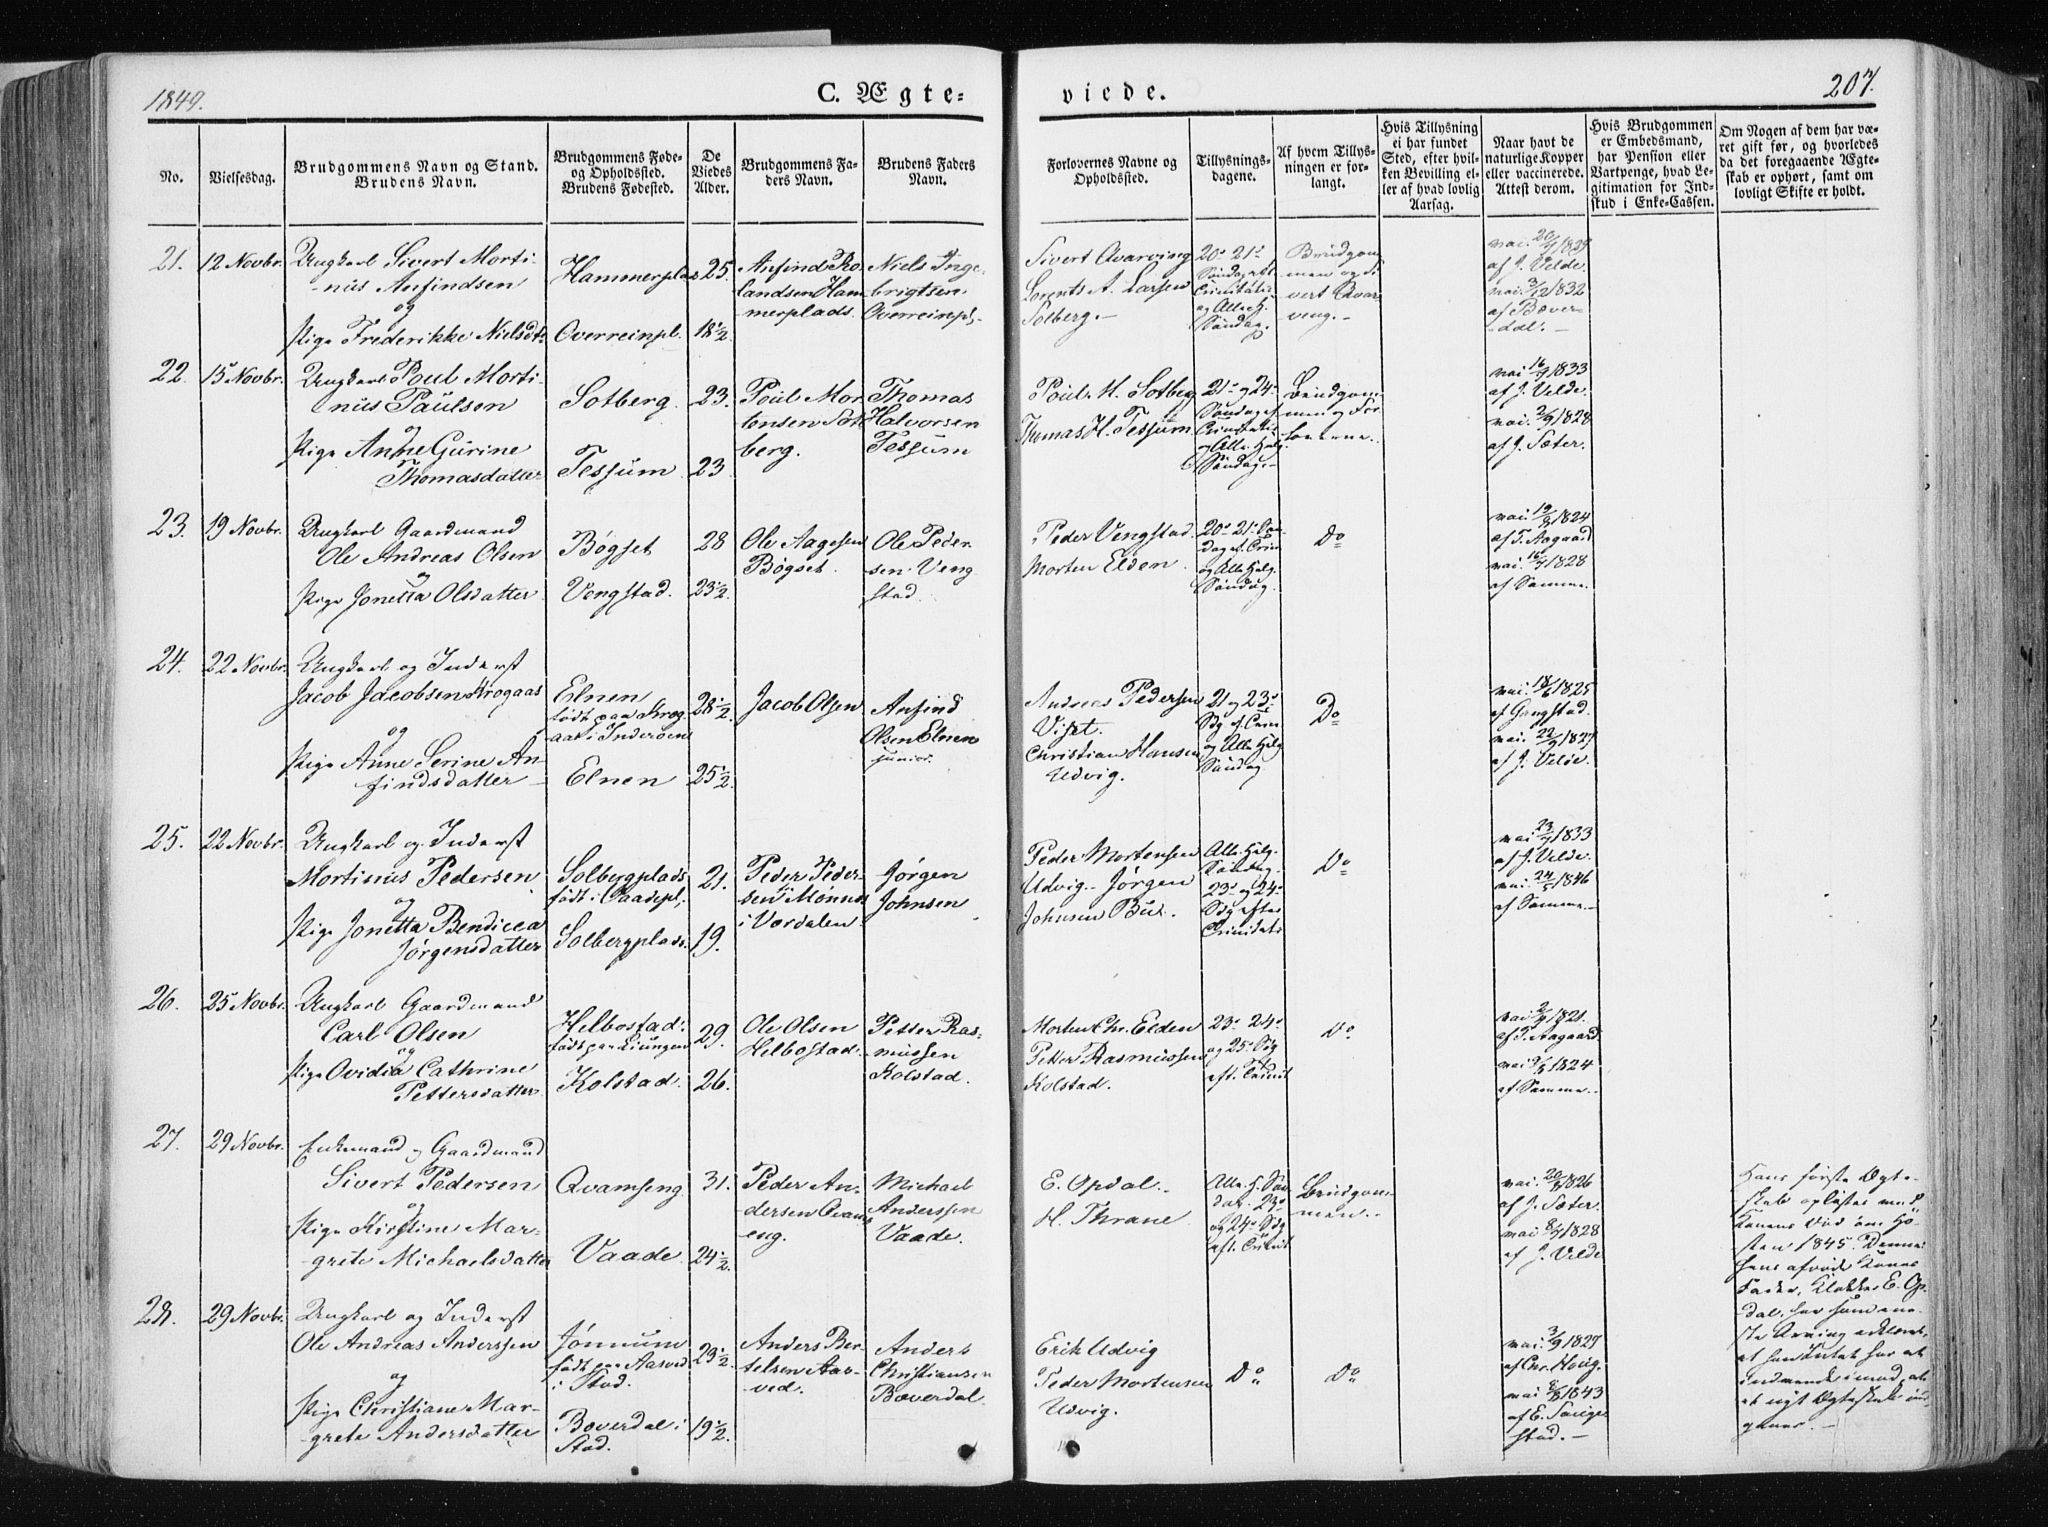 1849.
C. Ægte-
viede.
207.
No.
Vielsesdag.
Brudgommens Navn og Stand.
Brudens Navn.
Brudgommens Føde-
og Opholdssted.
Brudens Fødested.
De
Viedes
Alder.
Brudgommens Fa-
ders Navn.
Brudens Faders
Navn.
Forlovernes Navne og
Opholdssted.
Tillysnings-
dagene.
Af hvem Tillys-
ningen er for-
langt.
Hvis Tillysning
ei har fundet
Sted, efter hvil-
ken Bevilling el-
ler af hvad lovlig
Aarsag.
Naar havt de
naturlige Kopper
eller vaccinerede.
Attest derom.
Hvis Brudgommen
er Embedsmand,
har Pension eller
Vartpenge, hvad Le-
gitimation for Ind-
skud i Enke-Cassen.
Om Nogen af dem har væ-
ret gift før, og hvorledes
da det foregaaende Ægte-
skab er ophørt, samt om
lovligt Skifte er holdt.
21.
12 Novbr.
Ungkarl Sivert Morti-
nus Anfindsen
og
Pige Frederikke Nielsdt.
Hammerplads
Overreinpl.
25.
18½
Anfind Ro-
landsen Ham-
merplads.
Niels Inge-
brigtsen
Overreinpl.
Sivert Qvarving
Lorents A. Larsen
Solberg.
20de 21de
Søndag eft.
Trinitatis
og Alle H.
Søndag.
Brudgom-
men og Si-
vert Qvar-
veng.
vai. 20/9 1829
af J. Velde.
vai. 3/12 1832
af Bæver-
dal.
22.
15 Novbr.
Ungkarl Poul Morti-
nus Paulsen
og
Pige Anne Gurine
Thomasdatter
Sotberg.
Tessum
23.
23
Poul Mor-
tensen Sot-
berg.
Thomas
Halvorsen
Tessum
Poul M. Sotberg
Thomas H. Tessum.
21de og 24de
Søndag ef.
Trinitatis
og Alle Helg.
Søndag.
Brudgom-
men og For-
loverne.
vai 16/9 1833
af J. Velde.
vai. 2/9 1828
af J. Sæter.
23.
19 Novbr.
Ungkarl Gaardmand
Ole Andreas Olsen
og
Pige Jonetta Olsdatter
Bøgset
Vengstad.
28
23½
Ole Aagesen
Bøgset.
Ole Peder-
sen Veng-
stad.
Peder Vengstad.
Morten Elden.
20de 21de Søn-
dag ef. Trin.
og Alle Helg.
Søndag.
Do
vai. 19/9 1824
af T. Aagaard
vai. 16/7 1828
af Samme.
24.
22 Novbr.
Ungkarl og Inderst
Jacob Jacobsen Krogaas
og
Pige Anne Serine An-
findsdatter
Elnen
født paa Krog-
aas i Inderøen
Elnen
28½
25½
Jacob Olsen
Anfind
Olsen Elnen
junior.
Andreas Pedersen
Viset.
Christian Hansen
Udvig.
21 og 23de
Sdg ef. Trin
og Alle Helg
Søndag
Do
vai. 18/6 1825
af Gangstad.
vai. 22/9 1827
af J. Velde.
25.
22 Novbr.
Ungkarl og Inderst
Mortinus Pedersen
og
Pige Jonetta Bendicca
Jørgensdatter
Solbergplads
født i Vaadepl.
Solbergplads.
21.
19.
Peder Peder-
sen Mønnes
i Værdalen.
Jørgen
Johnsen
Peder Mortensen
Udvig. Jørgen
Johnsen Bue.
Alle Helg.
Søndag.
23de og 24de
Sdg efter
Trinitatis
Do
vai 23/7 1833
af J. Velde.
vai. 24/5 1846
af Samme.
26.
25 Novbr.
Ungkarl Gaardmand
Carl Olsen
og
Pige Ovidia Cathrine
Pettersdatter
Helbostad.
født paa Liungen
Kolstad.
29.
26.
Ole Olsen
Helbostad.
Petter Ras-
mussen
Kolstad.
Morten Chr. Elden
Petter Rasmussen
Kolstad.
23de 24de
og 25de Sdg
eft. Trinit
Do
vai. 2/9 1821.
af T. Aagaard.
vai 9/8 1824
af Samme.
27.
29 Novbr.
Enkemand og Gaardmand
Sivert Pedersen
og
Pige Kirstine Mar-
grete Michaelsdatter
Qvamseng.
Vaade
31.
24½
Peder An-
dersen Qvams-
eng.
Michael
Anderssen
Vaade.
E. Opdal.
H. Thrane
Alle H. Søn-
dag. 23de
og 24de Sdg
eft. Trinit
Brudgom-
men.
vai. 20/8 1826
af J. Sæter.
vai 8/7 1828
af J. Velde
Hans første Ægte-
skab opløstes ved
Konens Død om Hø-
sten 1845. Denne
hans afdøde Kones
Fader, Klokker E. Op-
dal, har som ene-
ste Arving erklæret,
at han Intet har at
indvende imod, at
et nyt Ægteskab ind-
gaaes.
28.
29 Novbr.
Ungkarl og Inderst
Ole Andreas Anderssen
og
Pige Christiane Mar-
grete Andersdatter
Jønnum
født paa Aasved
i Stod.
Bæverdal i
Stod.
23½
19½
Anders Ber-
telsen Aas-
ved.
Anders
Christiansen
Bæverdal.
Erik Udvig
Peder Mortensen
Udvig.
Do
Do
vai. 3/9 1827
af Chr. Hovig.
vai 8/8 1843
af E.
stad.